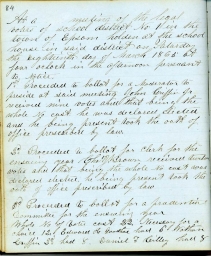 84
At a meeting of the legal
voters of school district No 1 in the
town of Epsom holden at the school
house in said district on Saturday
the eighteenth day of March 1865 at
four o'clock in the afternoon pursuant
to
1st Proceeded to ballot for a Moderator to
preside at said meeting John Griffin
received nine votes and that being the
whole No cast he was declared elected
and he being present took the oath of
office prescribed by law
2d Proceeded to ballot for Clerk for the
ensuing year Brown received
votes and that being the whole No cast was
declared elected he being present took the
oath of office prescribed by law
3d Proceeded to ballot for a prudential
Committee for the ensuing year
Whole No of votes cast 32 Necessary for a
choice Edward had 6 Nathan
Griffin had 8 Daniel had 8